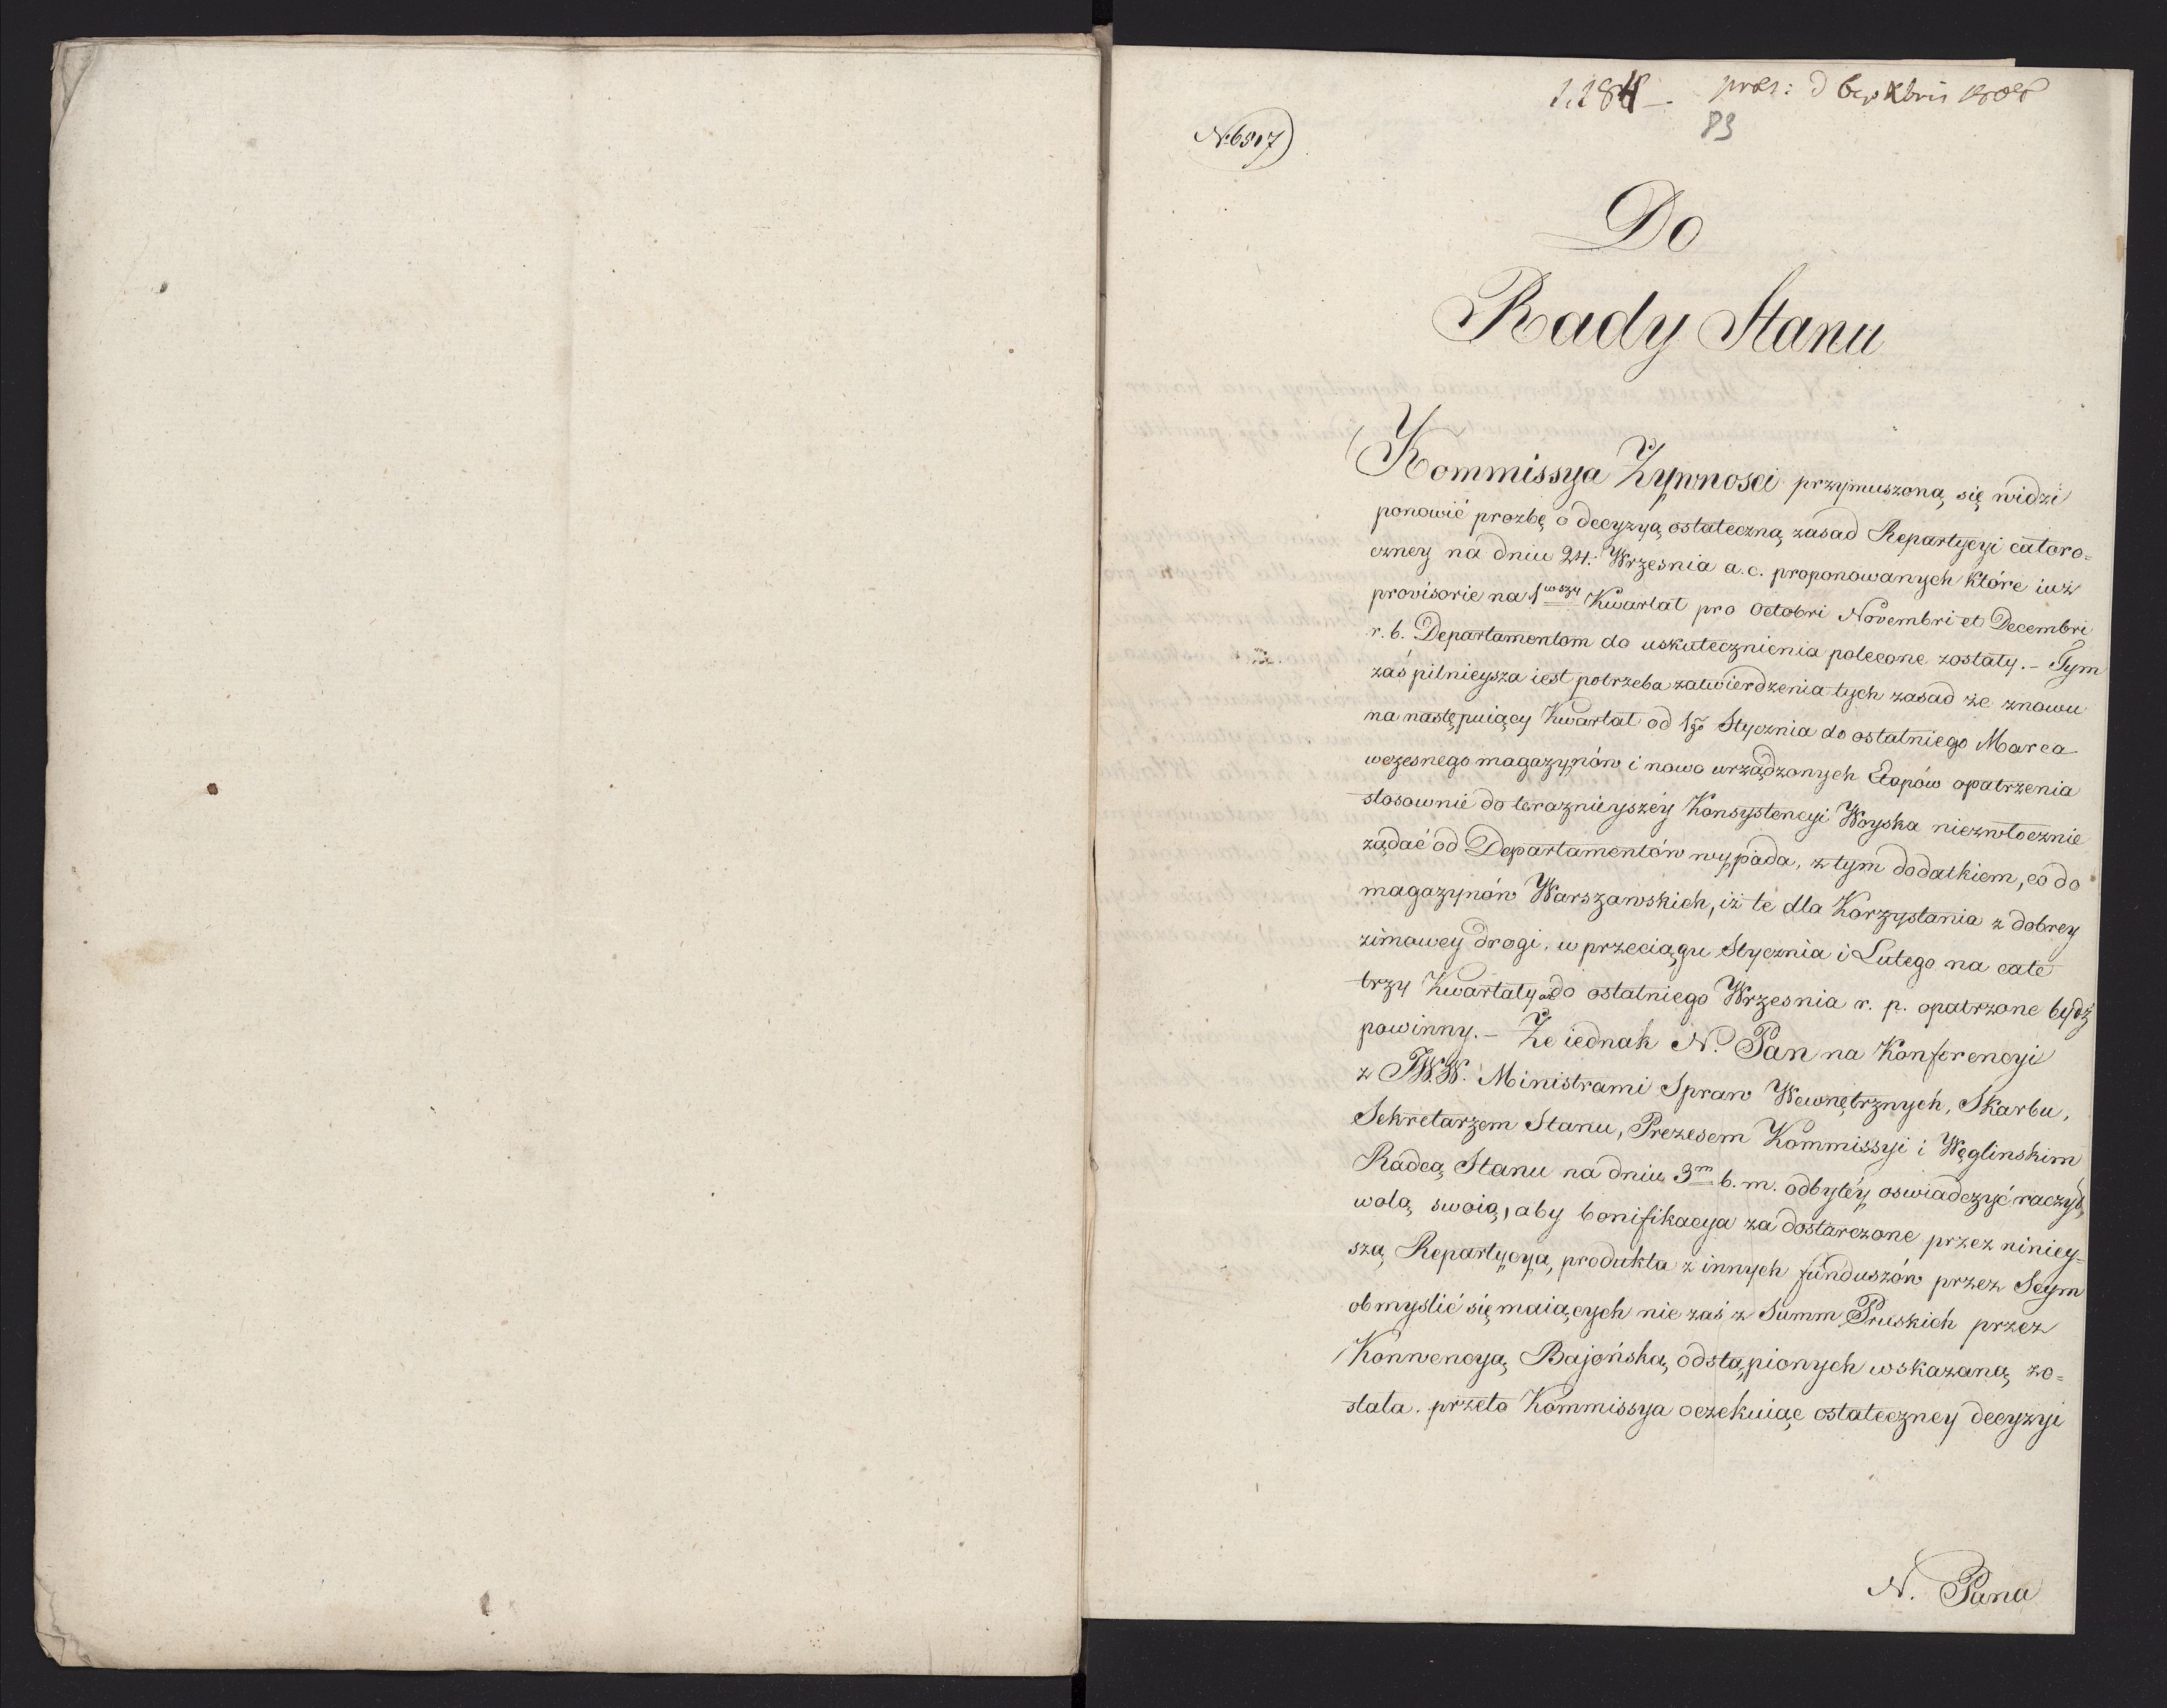 1,184 — præs: d 6 Xbris 1808
83
N. 6517)
Do
Rady Stanu
Kommissya Żywnosci przymuszoną się widzi
ponowić prozbę o decyzyą ostateczną zasad Repartycyi całoro=
czney na dniu 24. Wrzesnia a.c. proponowanych które iuż
provisorie na 1wszy Kwartał pro Octobri Novembri et Decembri
r. b. Departamentom do uskutecznienia polecone zostały. – Tym
zaś pilnieysza iest potrzeba zatwierdzenia tych zasad że znowu
na następuiący Kwartał od 1go Stycznia do ostatniego Marca
wczesnego magazynów i nowo urządzonych Etapów opatrzenia
stosownie do teraznieyszéy Konsystencyi Woyska niezwłocznie
ządać od Departamentów wypada, z tym dodatkiem, co do
magazynów Warszawskich, iż te dla Korzystania z dobrey
zimowey drogi, w przeciągu Stycznia i Lutego na całe
trzy Kwartały aż do ostatniego Wrzesnia r. p. opatrzone bydź
powinny. – Że iednak N. Pan na Konferencyi
z JWW. Ministrami Spraw Wewnętrznych, Skarbu,
Sekretarzem Stanu, Prezesem Kommissyi i Węglinskim
Radcą Stanu na dniu 3m b. m. odbytéy oswiadczyć raczył,
wolą swoią, aby bonifikacya za dostarczone przez niniey=
szą Repartycyą, produkta z innych funduszów przez Seym
obmyslić się maiących nie zaś z Summ Pruskich przez
Konwencyą Bajońską odstąpionych wskazaną zo=
stała. przeto Kommissya oczekuiąc ostateczney decyzyi
N. Pana